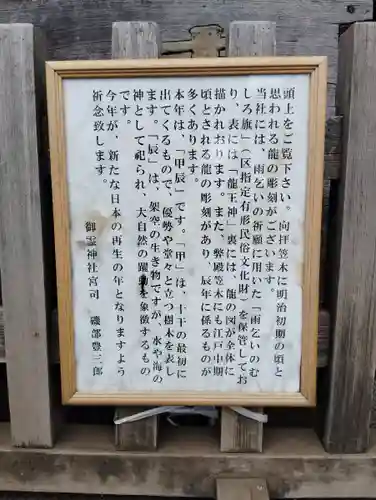 頭上をご覧下さい。向拝笠木に明治初期の頃と
思われる龍の彫刻がございます。
当社には、雨乞いの祈願に用いた「雨乞いのむ
しろ旗」（区指定有形民俗文化財）を保管してお
り、表には「龍王神」裏には、龍の図が全体に
描かれおります。また、弊殿笠木にも江戸中期
頃とされる龍の彫刻があり、辰年に係るものが
多くあります。
本年は、「甲辰」です。「甲」は、十干の最初に
出てくるもので、優勢や堂々と立つ樹木を表し
ます。「辰」は、架空の生き物ですが、水や海の
神として祀られ、大自然の躍動を象徴するもの
です。
今年が、新たな日本の再生の年となりますよう
祈念致します。
御霊神社宮司 磯部豊三郎